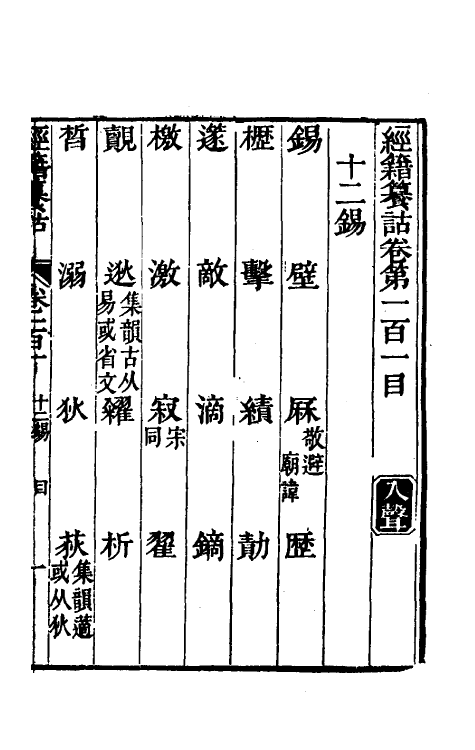 經籍纂詁卷第一百一目 入聲
十二錫
錫 壁 厤敬避廟諱 歷
櫪 擊 績 勣
蓫 敵 滴 鏑
檄 激 寂宋同 翟
覿 逖集韻古从易或省文 糴 析
晳 溺 狄 荻集韻藡或从狄
經籍纂詁 卷一百一 十二錫 目 一